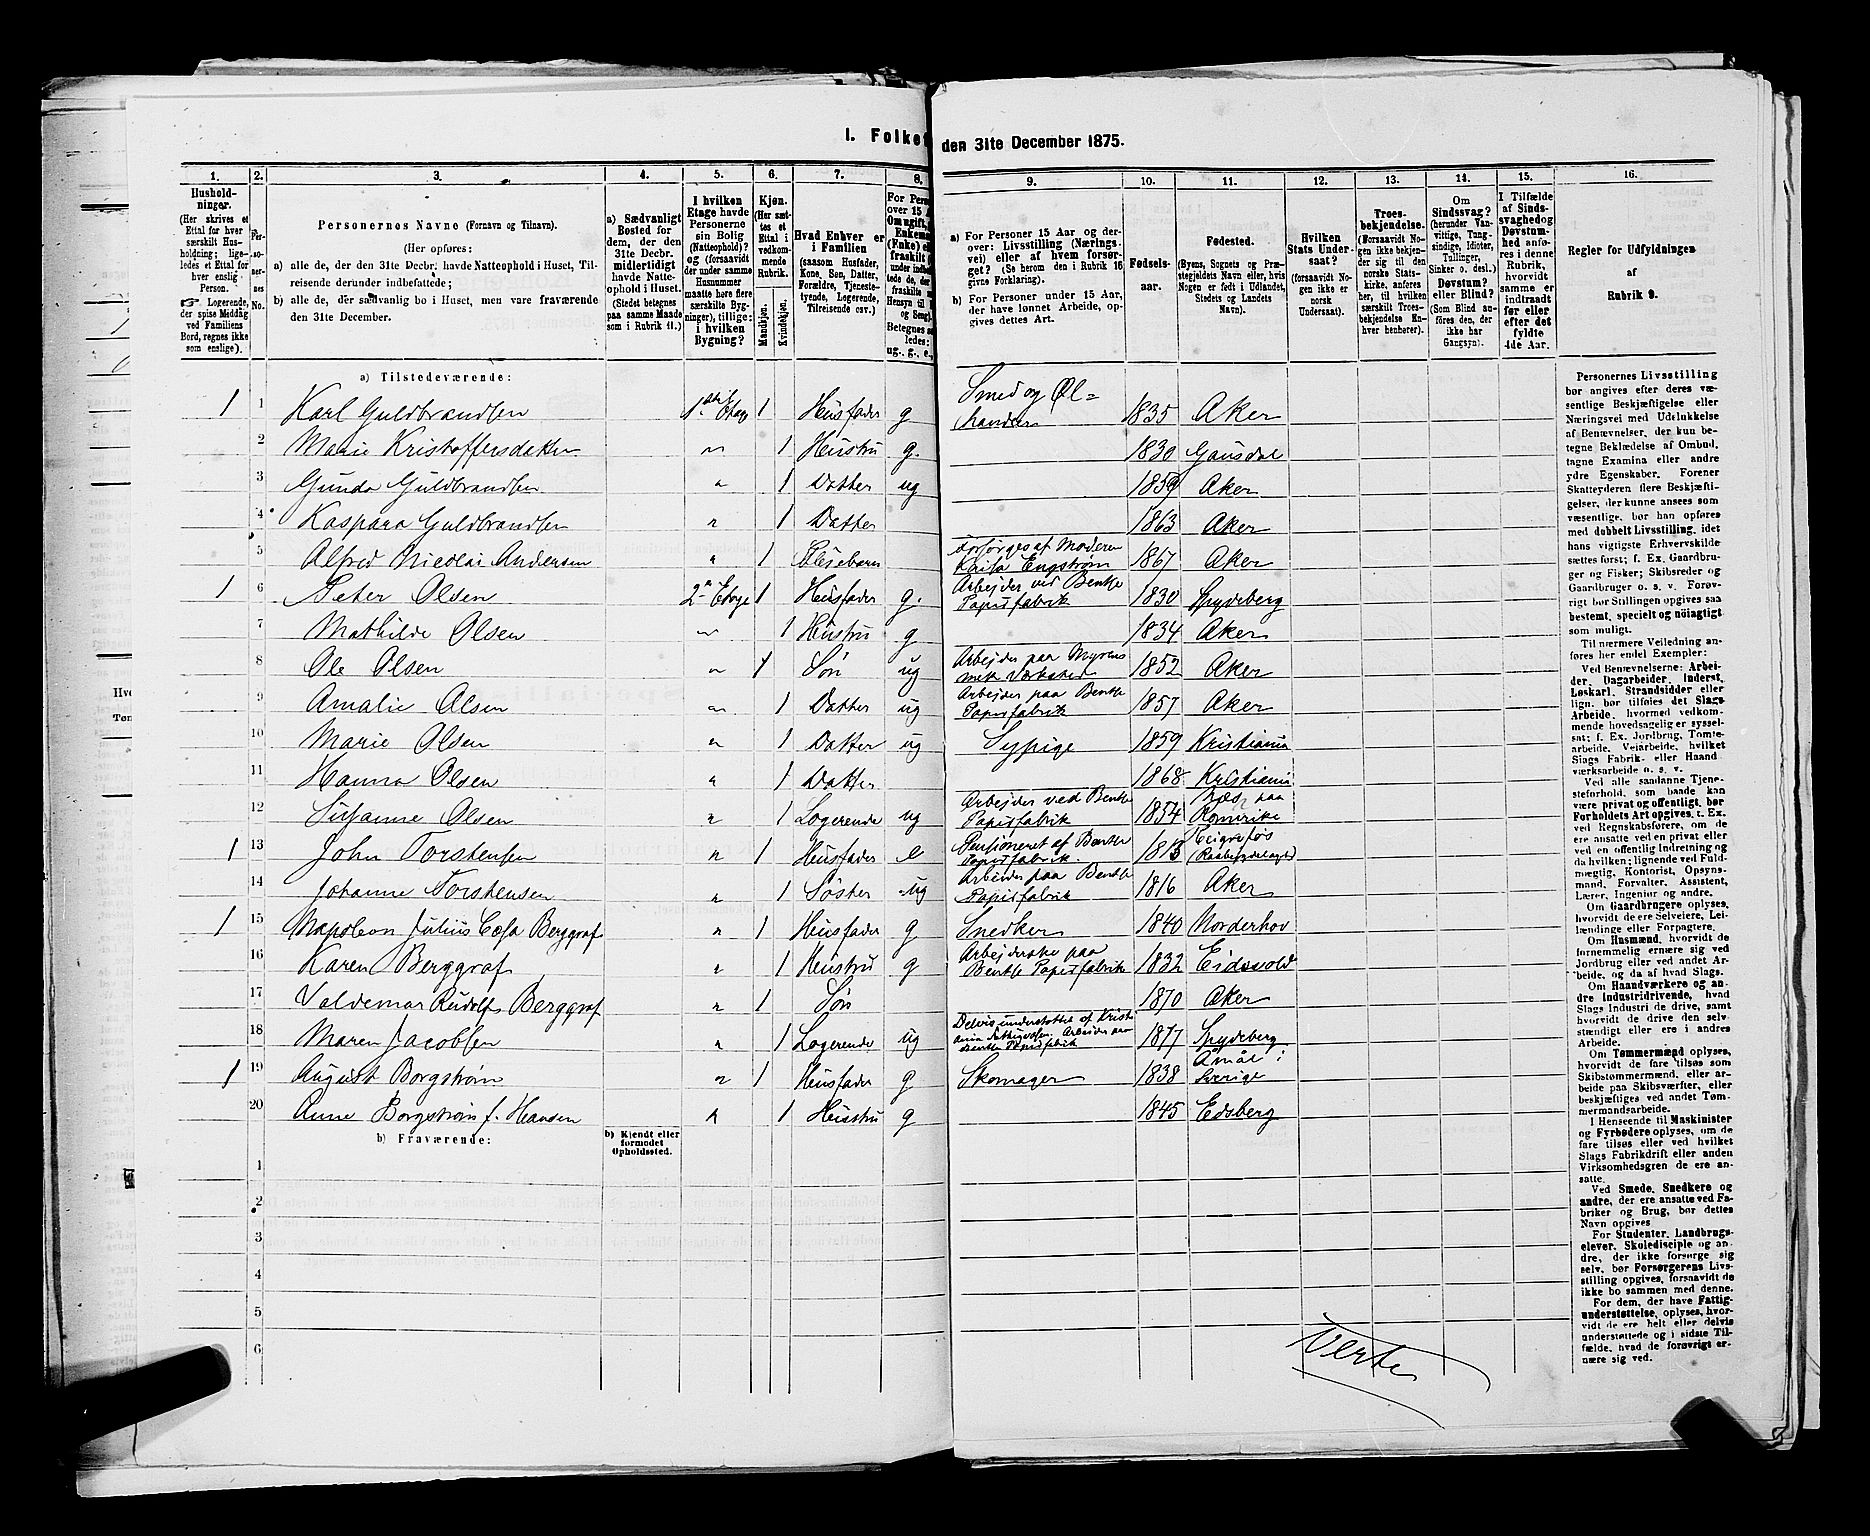 I. Folket
den 31te December 1875.
1.
2.
3.
4.
5.
6.
7.
8.
9.
10.
11.
12.
13.
14.
15.
16.
Hushold-
ninger.
(Her skrives et
Ettal for hver
særskilt Hus-
holdning; lige-
ledes et Ettal for
hver enslig
Person.
Logerende,
der spise Middag
ved Familiens
Bord, regnes ikke
som enslige).
Per-
so-
ner-
nes
No.
Personernes Navne (Fornavn og Tilnavn).
(Her opføres:
a) alle de, der den 31te Decbr. havde Natteophold i Huset, Til-
reisende derunder indbefattede;
b) alle de, der sædvanlig bo i Huset, men vare fraværende
den 31te December.
a) Sædvanligt
Bosted for
dem, der den
31te Decbr.
midlertidigt
havde Natte-
ophold i Huset.
(Stedet betegnes
paa samme Maade
som i Rubrik 11.)
I hvilken
Etage havde
Personerne
sin Bolig
(Natteophold)?
og (forsaavidt
der under samme
Husnummer
maatte høre flere
særskilte Byg-
ninger), tillige:
i hvilken
Bygning?
Kjøn.
(Her sæt-
tes et
Ettal i
vedkom-
mende
Rubrik.
Mandkjøn.
Kvindekjøn.
Hvad Enhver er
i Familien
(saasom Husfader,
Kone, Søn, Datter,
Forældre, Tjeneste-
tyende, Logerende,
Tilreisende osv.)
For Pers
over 15 A
Om ugift,
Enkema
(Enke) el
fraskilt
under indbe
tede de, der
fraskilte
Hensyn til
og Seng).
Betegnes s
ledes:
ug., g., e.,
a) For Personer 15 Aar og der-
over: Livsstilling (Nærings-
vei) eller af hvem forsør-
get? (Se herom den i Rubrik 16
givne Forklaring).
b) For Personer under 15 Aar,
der have lønnet Arbeide, op-
gives dettes Art.
Fødsels-
aar.
Fødested.
(Byens, Sognets og Præ-
stegjeldets Navn eller, hvis
Nogen er født i Udlandet,
Stedets og Landets
Navn).
Hvilken
Stats Under-
saat?
(forsaavidt No-
gen ikke er
norsk
Undersaat).
Troes-
bekjendelse.
(Forsaavidt No-
gen ikke bekjen-
der sig til den
norske Stats-
kirke, anføres
her, til hvilken
særskilt Troes-
bekjendelse En-
hver henhører).
Om
Sindssvag?
(herunder Van-
vittige, Tung-
sindige, Idioter,
Tullinger,
Sinker o. desl.)
Døvstum?
eller Blind?
(Som Blind an-
føres den, der
ikke har
Gangsyn).
I Tilfælde
af Sinds-
svaghed og
Døvstum-
hed anfø-
res i denne
Rubrik,
hvorvidt
samme er
indtraadt
før eller
efter det
fyldte
4de Aar.
Regler for Udfyldningen
af
Rubrik 9.
a) Tilstedeværende:
1 1 Karl Guldbrandsen 1ste Etage 1 Husfader g Smed og Øl= handler 1835 Aker
2 Marie Kristoffersdatter " 1 Hustru g. 1830 Gausdal
3 Gunda Guldbrandsen " 1 Datter ug 1859 Aker
4 Kaspara Guldbrandsen " 1 Datter 1863 Aker
5 Alfred Nicolai Andersen " 1 Pleiebarn Forsørges af Moderen Kaisa Engstrøm 1867 Aker
1 6 Peter Olsen 2n Etage 1 Husfader g. Arbejder ved Bentse Papirfabrik 1830 Spydeberg
7 Mathilde Olsen " 1 Hustru g 1834 Aker
8 Ole Olsen " 1 Søn ug Arbejder paa Myrens mek Værksted 1852 Aker
9 Amalie Olsen " 1 Datter ug Arbejder paa Bentse Papirfabrik 1857 Aker
10 Marie Olsen " 1 Datter ug Sypige 1859 Kristiania
11 Hanna Olsen " 1 Datter 1868 Kristiania
12 Susanne Olsen " 1 Logerende ug Arbejder ved Bentse Papirfabrik 1854 Næs paa Romerike
1 13 John Torstensen " 1 Husfader e Pensioneret af Bentse Papirfabrik. 1813
14 Johanne Torstensen " 1 Søster ug Arbeider paa Bentse Papirfabrik 1816 Aker
1 15 Napoleon Julius Cesa Berggraf " 1 Husfader g Snedker 1840 Norderhov
16 Karen Berggraf " 1 Hustru g Arbejderske paa Bentse Papirfabrik 1832 Eidsvold
17 Valdemar Rudolf Berggraf " 1 Søn 1870 Aker
18 Maren Jacobsen " 1 Logerende ug Delvis understøttet af Kristi ania Fattigvæsen. Arbejder paa Bentse Papirfabrik Spydeberg
1 19 August Borgstrøm " 1 Husfader g Skomager 1838 Åmål i Sverige
20 Anne Borgstrøm f. Hansen " 1 Hustru g 1845 Edsberg
b) Fraværende:
b) Kjendt eller
formodet
Opholdssted.
1
2
3
4
5
6
Verte
Personernes Livsstilling
bør angives efter deres væ-
sentlige Beskjæftigelse eller
Næringsvei med Udelukkelse
af Benævnelser, der kun be-
tegne Beklædelse af Ombud,
tagne Examina eller andre
ydre Egenskaber. Forener
Skatteyderen flere Beskjæfti-
gelser, der kunne ansees som
væsentlige, bør han opføres
med dobbelt Livsstilling, idet
hans vigtigste Erhvervskilde
sættes først; f. Ex. Gaardbru-
ger og Fisker; Skibsreder og
Gaardbruger o. s. v. Forøv-
rigt bør Stillingen opgives saa
bestemt, specielt og nøiagtigt
som muligt.
Til nærmere Veiledning an-
føres her endel Exempler:
Ved Benævnelserne: Arbei-
der, Dagarbeider, Inderst,
Løskarl, Strandsidder eller
lign. bør tilføies det Slags
Arbeide, hvormed vedkom-
mende hovedsagelig er syssel-
sat; f. Ex. Jordbrug, Tomte-
arbeide, Veiarbeide, hvilket
Slags Fabrik- eller Haand
værksarbeide o. s. v.
Ved alle saadanne Tjene-
steforhold, som baade kan
være privat og offentligt, bør
Forholdets Art opgives, t. Ex.
ved Regnskabsførere, om de
ere ansatte ved en privat eller
ved en offentlig Indretning og
da hvilken; lignende ved Fuld-
mægtig, Kontorist, Opsyns-
mand, Forvalter, Assistent,
Lærer, Ingeniør og andre.
Om Gaardbrugere oplyses,
hvorvidt de ere Selveiere, Lei-
lændinge eller Forpagtere.
Om Husmænd, hvorvidt de
fornemmelig ernære sig ved
Jordbrug eller ved andet Ar-
beide, og da af hvad Slags.
Om Haandværkere og an-
dre Industridrivende, hvad
Slags Industri de drive, samt
hvorvidt de drive den selv-
stændigt eller ere i andres
Arbeide.
Om Tømmermænd oplyses,
hvorvidt de fare tilsøs som
Skibstømmermænd, eller ar-
beide paa Skibsværfter, eller
beskjæftiges ved andet Tøm-
mermandsarbeide.
I Henseende til Maskinister
og Fyrbødere oplyses, om de
fare tilsøs eller ved hvilket
Slags Fabrikdrift eller anden
Virksomhedsgren de ere an-
satte.
Ved Smede, Snedkere og
andre, der ere ansatte ved Fa-
briker og Brug, bør dettes
Navn opgives.
For Studenter, Landbrugs-
elever, Skoledisciple og an-
dre, der ikke forsørge sig
selv, bør Forsørgerens Livs-
stilling opgives, forsaavidt de
ikke bo sammen med denne.
For dem, der have Fattig-
understøttelse, oplyses, hvor-
vidt de ere helt eller delvis
understøttede og i sidste Til-
fælde, hvad de forøvrigt er-
nære sig ved.